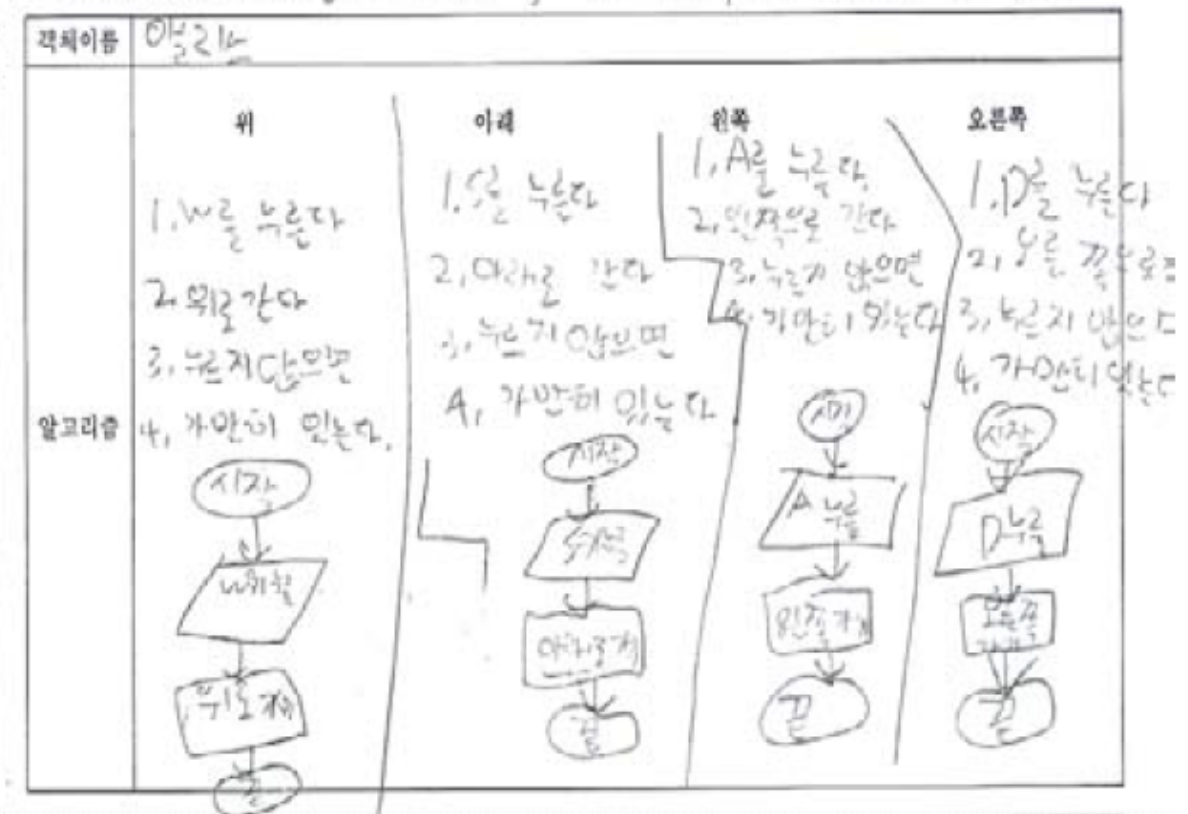 객체이름 앨리스
알고리즘
위
1. W를 누른다
2. 위로 간다
3. 누르지 않으면
4. 가만히 있는다.
시작
위로 가기
끝
아래
1. S를 누른다
2. 아래로 간다
3. 누르지 않으면
4. 가만히 있는다
시작
아래로 가기
끝
왼쪽
1. A를 누른다.
2. 왼쪽으로 간다
3. 누르지 않으면
4. 가만히 있는다
시작
A 누름
왼쪽 가기
끝
오른쪽
1. D를 누른다
2. 오른쪽으로
3. 누르지 않으
4. 가만히 있는다
시작
D 누름
오른쪽
끝